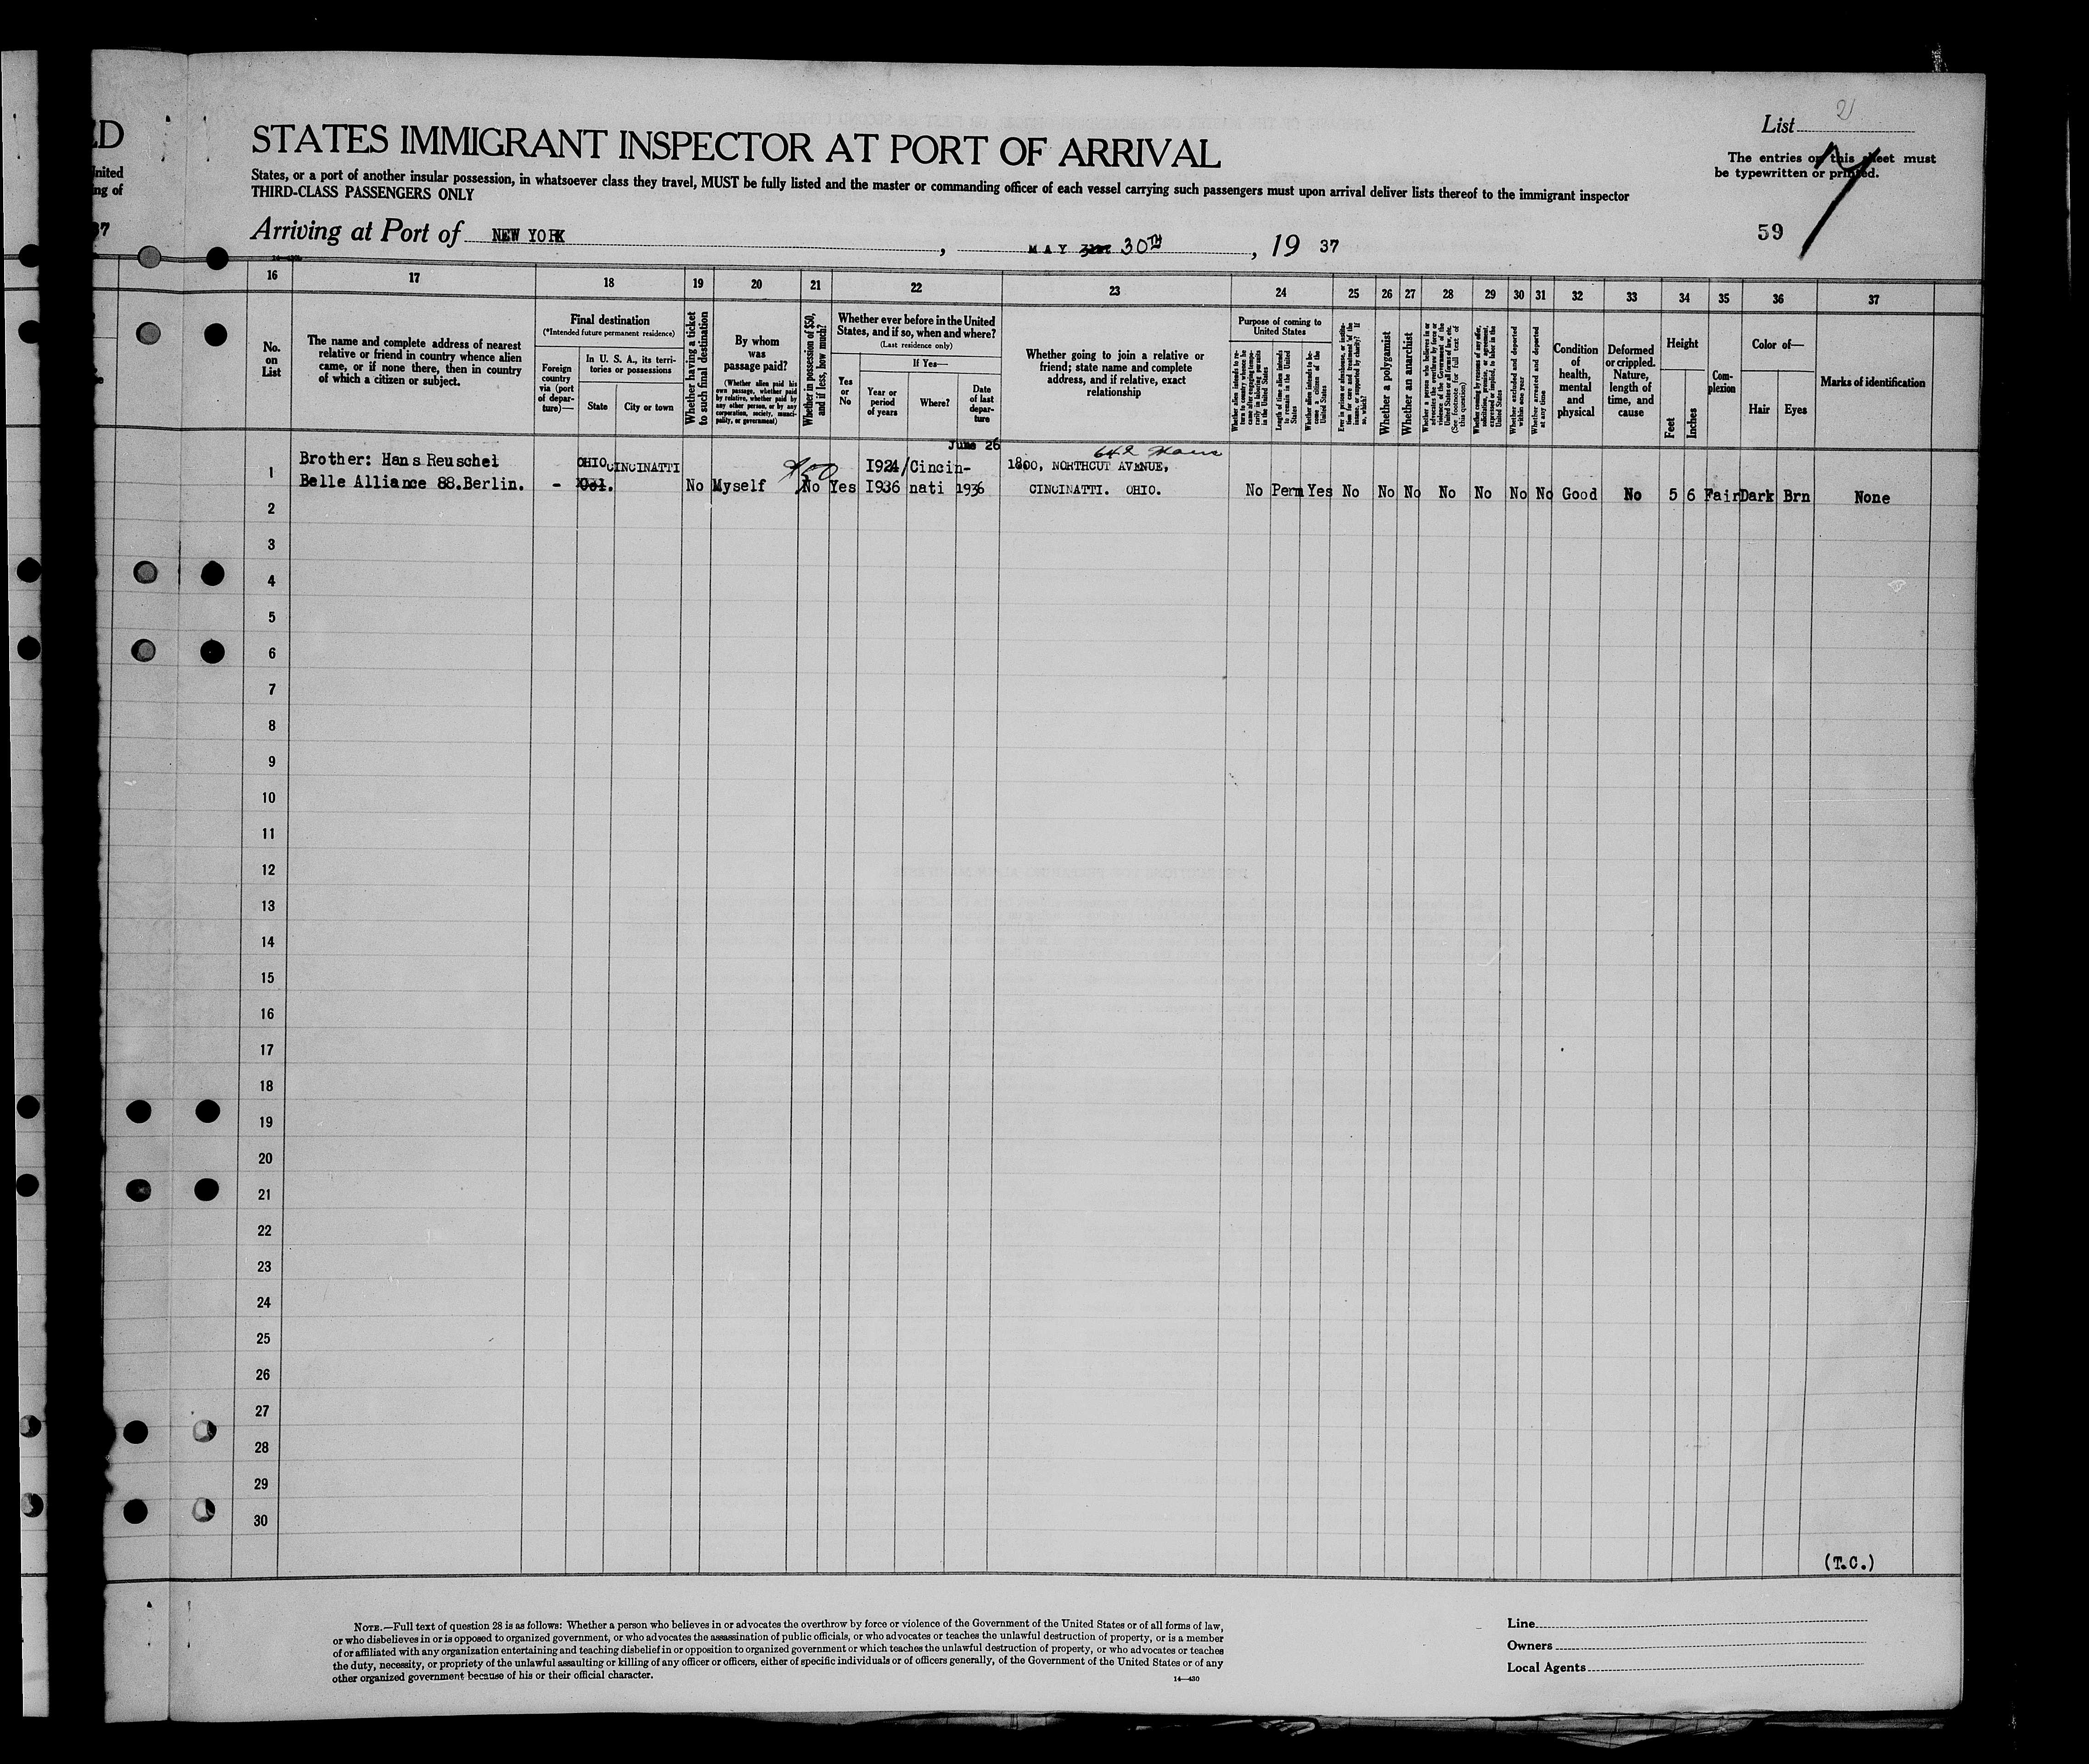 ED
nited
ing of
37
List 2
STATES IMMIGRANT INSPECTOR AT PORT OF ARRIVAL
The entries on this sheet must
be typewritten or printed.
States, or a port of another insular possession, in whatsoever class they travel, MUST be fully listed and the master or commanding officer of each vessel carrying such passengers must upon arrival deliver lists thereof to the immigrant inspector
THIRD-CLASS PASSENGERS ONLY
59
Arriving at Port of NEW YORK, MAY 30TH, 19 37
16 17 18 19 20 21 22 23 24 25 26 27 28 29 30 31 32 33 34 35 36 37
No.
on
List
The name and complete address of nearest
relative or friend in country whence alien
came, or if none there, then in country
of which a citizen or subject.
Final destination
(*Intended future permanent residence)
Foreign
country
via (port
of depar-
ture)—
In U. S. A., its terri-
tories or possessions
State
City or town
Whether having a ticket
to such final destination
By whom
was
passage paid?
(Whether alien paid his
own passage, whether paid
by relative, whether paid by
any other person, or by any
corporation, society, munici-
pality, or government)
Whether in possession of $50,
and if less, how much?
Whether ever before in the United
States, and if so, when and where?
(Last residence only)
Yes
or
No
If Yes—
Year or
period
of years
Where?
Date
of last
depar-
ture
Whether going to join a relative or
friend; state name and complete
address, and if relative, exact
relationship
Purpose of coming to
United States
Whether alien intends to re-
turn to country whence he
came after engaging tempo-
rarily in laboring pursuits
in the United States
Length of time alien intends
to remain in the United
States
Whether alien intends to be-
come a citizen of the
United States
Ever in prison or almshouse, or institu-
tion for care and treatment of the
insane, or supported by charity? If
so, which?
Whether a polygamist
Whether an anarchist
Whether a person who believes in or
advocates the overthrow by force or
violence of the Government of the
United States or all forms of law, etc.
(See footnote for full text of
this question)
Whether coming by reason of any offer,
solicitation, promise, or agreement,
expressed or implied, to labor in the
United States
Whether excluded and deported
within one year
Whether arrested and deported
at any time
Condition
of
health,
mental
and
physical
Deformed
or crippled.
Nature,
length of
time, and
cause
Height
Feet
Inches
Com-
plexion
Color of—
Hair
Eyes
Marks of identification
June 26
1 Brother: Hans Reuschel OHIO CINCINATTI $50 1924/ Cincin- 1800, NORTHCUT AVENUE,
Belle Alliance 88.Berlin. - No Myself No Yes 1936 nati 1936 CINCINATTI. OHIO. No Perm Yes No No No No No No No Good No 5 6 Fair Dark Brn None
2
3
4
5
6
7
8
9
10
11
12
13
14
15
16
17
18
19
20
21
22
23
24
25
26
27
28
29
30
(T.C.)
NOTE.—Full text of question 28 is as follows: Whether a person who believes in or advocates the overthrow by force or violence of the Government of the United States or of all forms of law,
or who disbelieves in or is opposed to organized government, or who advocates the assassination of public officials, or who advocates or teaches the unlawful destruction of property, or is a member
of or affiliated with any organization entertaining and teaching disbelief in or opposition to organized government or which teaches the unlawful destruction of property, or who advocates or teaches
the duty, necessity, or propriety of the unlawful assaulting or killing of any officer or officers, either of specific individuals or of officers generally, of the Government of the United States or of any
other organized government because of his or their official character.
14—430
Line
Owners
Local Agents